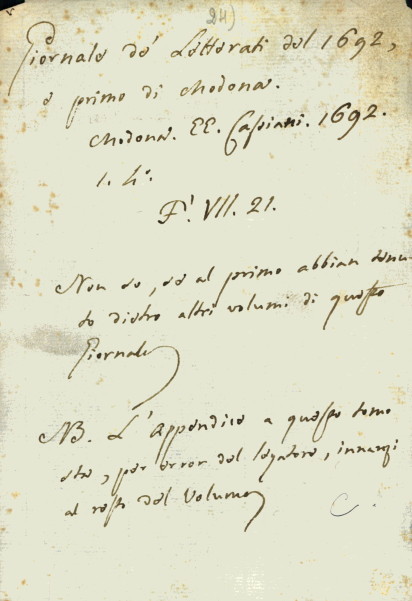 24)
Giornale de' Letterati del 1692,
e primo di Modona.
Modona. EE. Cassiani. 1692.
1. 4°.
F. VII. 21.
Non so, se al primo abbian tenu-
to dietro altri volumi di questo
Giornale
NB. L'Appendice a questo tomo
sta, per error del legatore, innanzi
al resto del Volume
C.